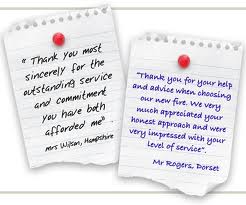 “ Thank you most
sincerely for the
outstanding service
and commitment
you have both
afforded me”
mrs Wilson, Hampshire
“Thank you for your help
and advice when choosing
our new fire. We very
much appreciated your
honest approach and were
very impressed with your
level of service”.
Mr Rogers, Dorset